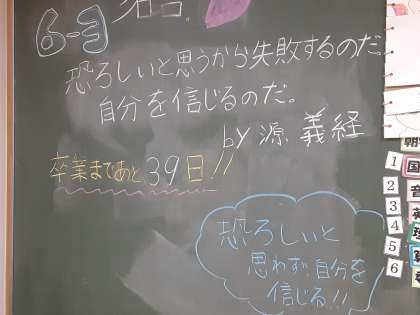 6-3
名言
恐ろしいと思うから失敗するのだ
自分を信じるのだ。
by 源 義経
卒業まであと39日!!
恐ろしいと
思わず自分を
信じる!!
朝
1 国
2 音
3
4 理
5 算
6